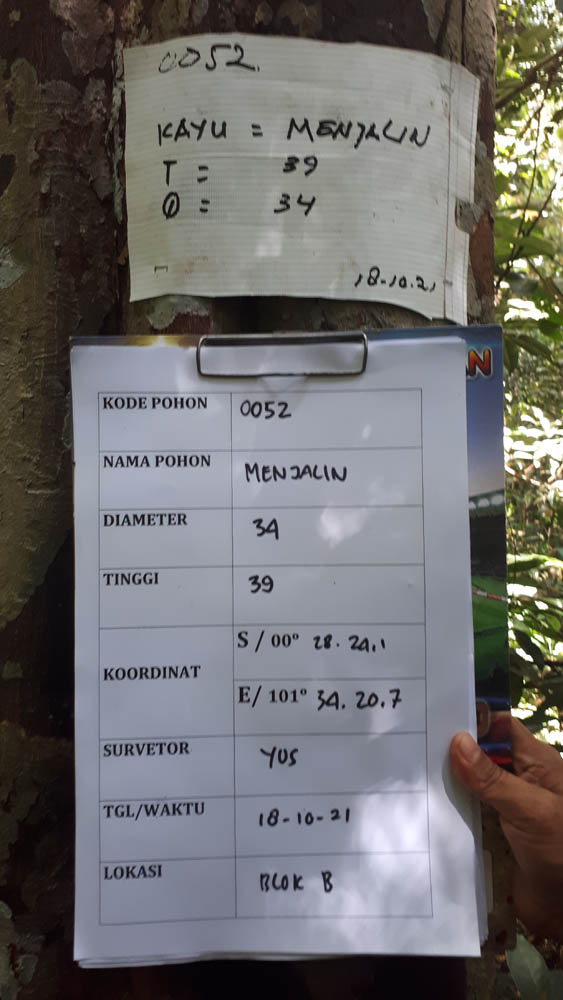 0052.
KAYU = MENJALIN
T = 39
Ø = 34
18-10.21
AN
KODE POHON 0052
NAMA POHON MENJALIN
DIAMETER 34
TINGGI 39
KOORDINAT
S / 00° 28. 24.1
E/ 101° 34. 20.7
SURVETOR YUS
TGL/WAKTU 18-10-21
LOKASI BLOK B